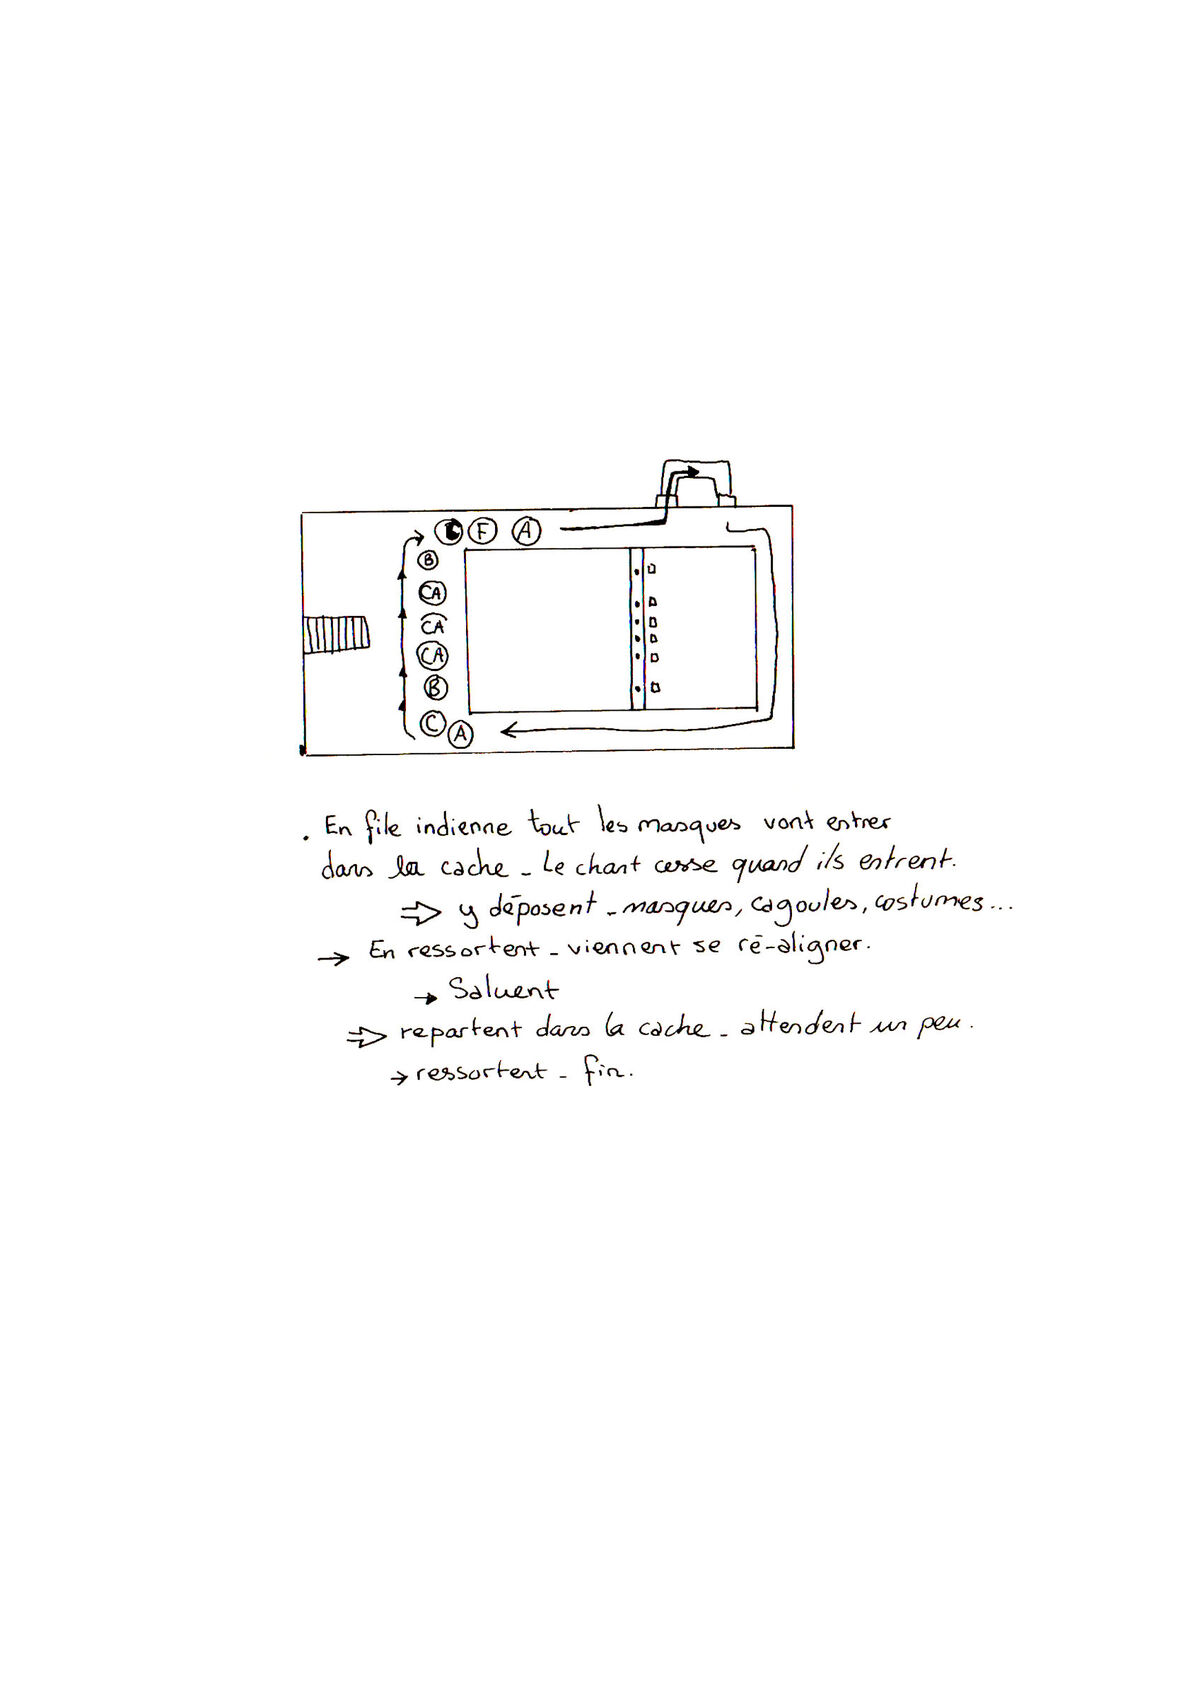 F A
B
CA
CA
CA
B
C A
. En file indienne tout les masques vont entrer
dans la cache - Le chant cesse quand ils entrent.
⇒ y déposent - masques, cagoules, costumes...
→ En ressortent - viennent se ré-aligner.
→ Saluent
⇒ repartent dans la cache - attendent un peu.
→ ressortent - fin.